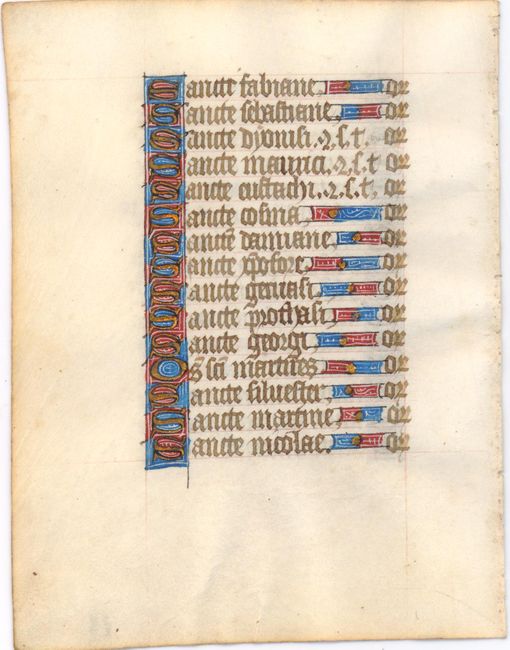 Sancte fabiane. or
Sancte sebastiane. or
Sancte dyonisi. ⁊. s. t. or
Sancte maurici. ⁊. s. t. or
Sancte eustachi. ⁊. s. t. or
Sancte cosma. or
Sancte damiane. or
Sancte xp̄ofore. or
Sancte geruasi. or
Sancte prothasi. or
Sancte georgi. or
Om̄s sc̄i martires. or
Sancte siluester. or
Sancte martine. or
Sancte nicolae. or